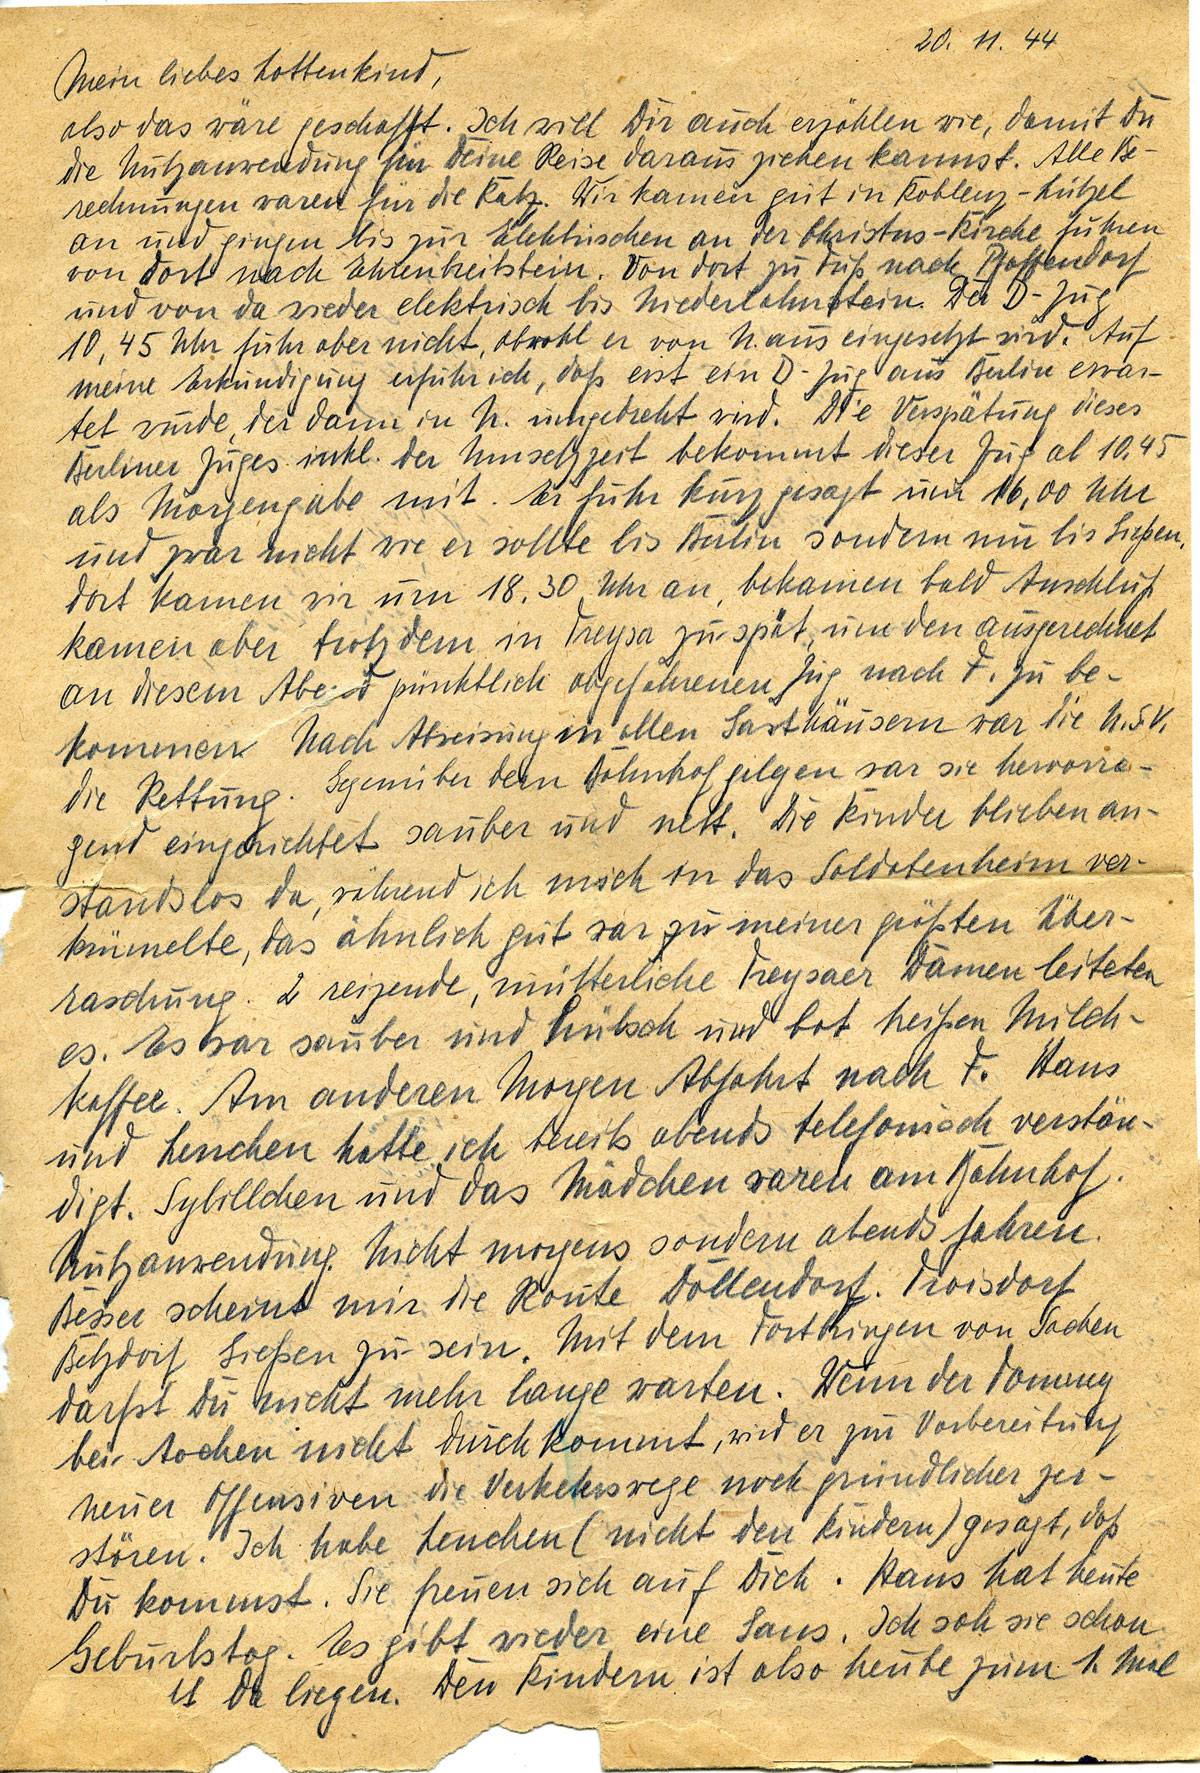 20. 11. 44
Mein liebes Lottenkind,
also das wäre geschafft. Ich will Dir auch erzählen wie, damit Du
die Nutzanwendung für Deine Reise daraus ziehen kannst. Alle Be-
rechnungen waren für die Katz. Wir kamen gut in Koblenz-Lützel
an und gingen bis zur Elektrischen an der Christus-Kirche fuhren
von dort nach Ehrenbreitstein. Von dort zu Fuß nach Pfaffendorf
und von da wieder elektrisch bis Niederlahnstein. Der D-Zug
10,45 Uhr fuhr aber nicht, obwohl er von N. aus eingesetzt wird. Auf
meine Erkundigung erfuhr ich, daß erst ein D-Zug aus Berlin erwar-
tet wurde, der dann in N. umgedreht wird. Die Verspätung dieses
Berliner Zuges inkl. der Umsetzzeit bekommt dieser Zug ab 10.45
als Morgengabe mit. Er fuhr kurz gesagt um 16,00 Uhr
und zwar nicht wie er sollte bis Berlin sondern nur bis Gießen,
dort kamen wir um 18.30 Uhr an, bekamen bald Anschluß
kamen aber trotzdem in Treysa zu spät, um den ausgerechnet
an diesem Abend pünktlich abgefahrenen Zug nach F. zu be-
kommen. Nach Abweisung in allen Gasthäusern war die N.S.V.
die Rettung. Gegenüber dem Bahnhof gelegen war sie hervorra-
gend eingerichtet sauber und nett. Die Kinder blieben an-
standslos da, während ich mich in das Soldatenheim ver-
krümelte, das ähnlich gut war zu meiner größten Über-
raschung. 2 reizende, mütterliche Treysaer Damen leiteten
es. Es war sauber und hübsch und bot heißen Milch-
kaffee. Am anderen Morgen Abfahrt nach F. Hans
und Lenchen hatte ich bereits abends telefonisch verstän-
digt. Sybillchen und das Mädchen waren am Bahnhof.
Nutzanwendung. Nicht morgens sondern abends fahren.
Besser scheint mir die Route Dollendorf. Troisdorf
Betzdorf Gießen zu sein. Mit dem Fortbringen von Sachen
darfst Du nicht mehr lange warten. Wenn der Tommy
bei Aachen nicht durchkommt, wird er zur Vorbereitung
neuer Offensiven die Verkehrswege noch gründlicher zer-
stören. Ich habe Lenchen (nicht den Kindern) gesagt, daß
Du kommst. Sie freuen sich auf Dich. Hans hat heute
Geburtstag. Es gibt wieder eine Gans. Ich sah sie schon
da liegen. Den Kindern ist also heute zum 1. Mal